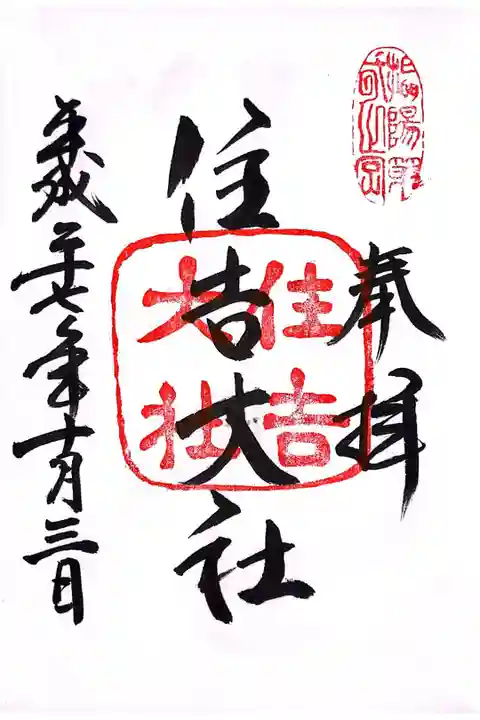 奉拝
住吉大社
住吉
大社
平成二十七年十月三日